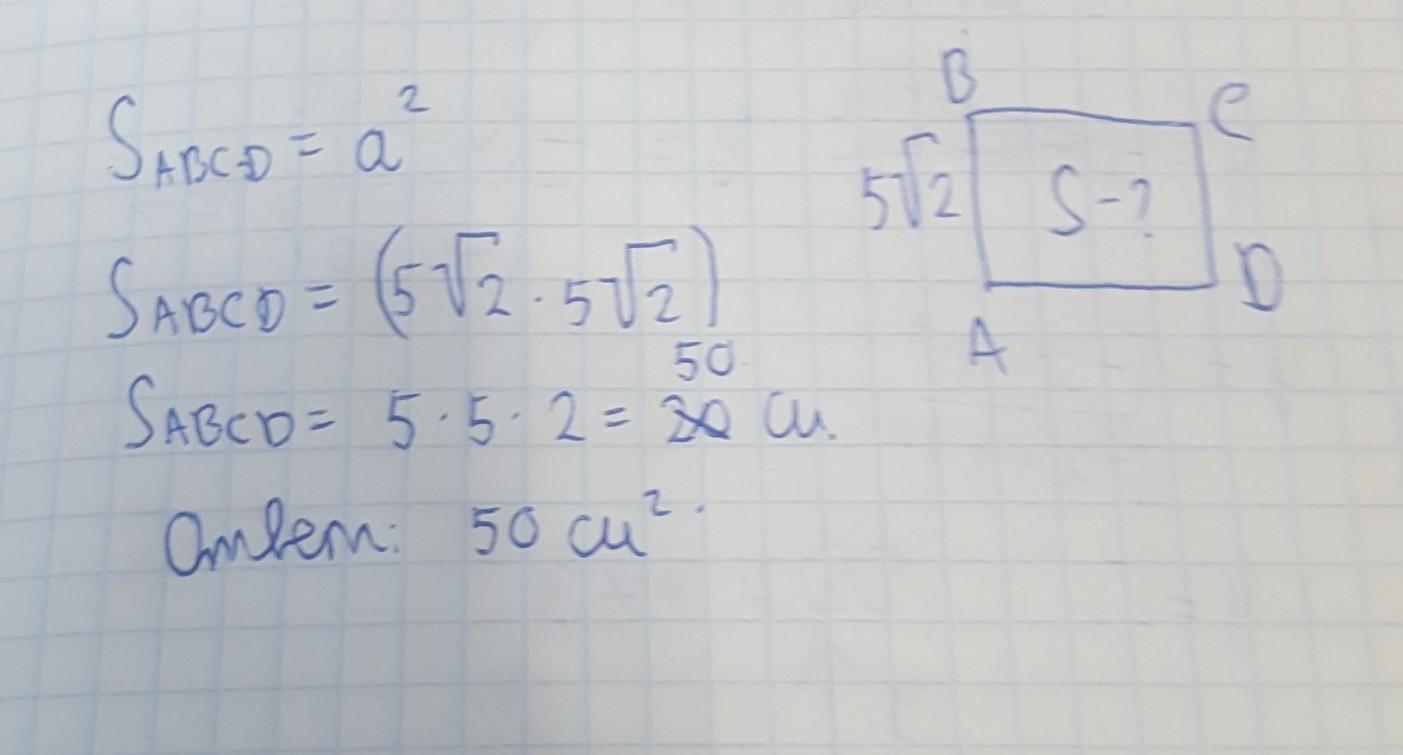 S_ABCD = a²
S_ABCD = (5√2 · 5√2)
50
S_ABCD = 5 · 5 · 2 = см.
Ответ: 50 см².
B
C
5√2
S-?
D
A